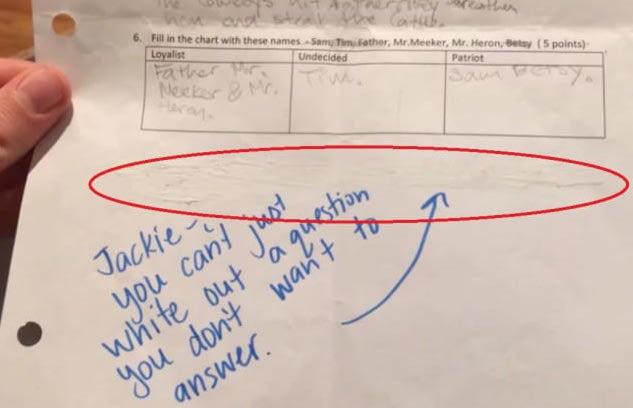 the Cowboys hit
him and steak the Cattle.
6. Fill in the chart with these names. -Sam, Tim, Father, Mr.Meeker, Mr. Heron, Betsy ( 5 points)
Loyalist Undecided Patriot
Father Mr. Tim. Sam Betsy.
Meeker & Mr.
Heron.
Jackie -
you can't just
white out a question
you don't want to
answer.